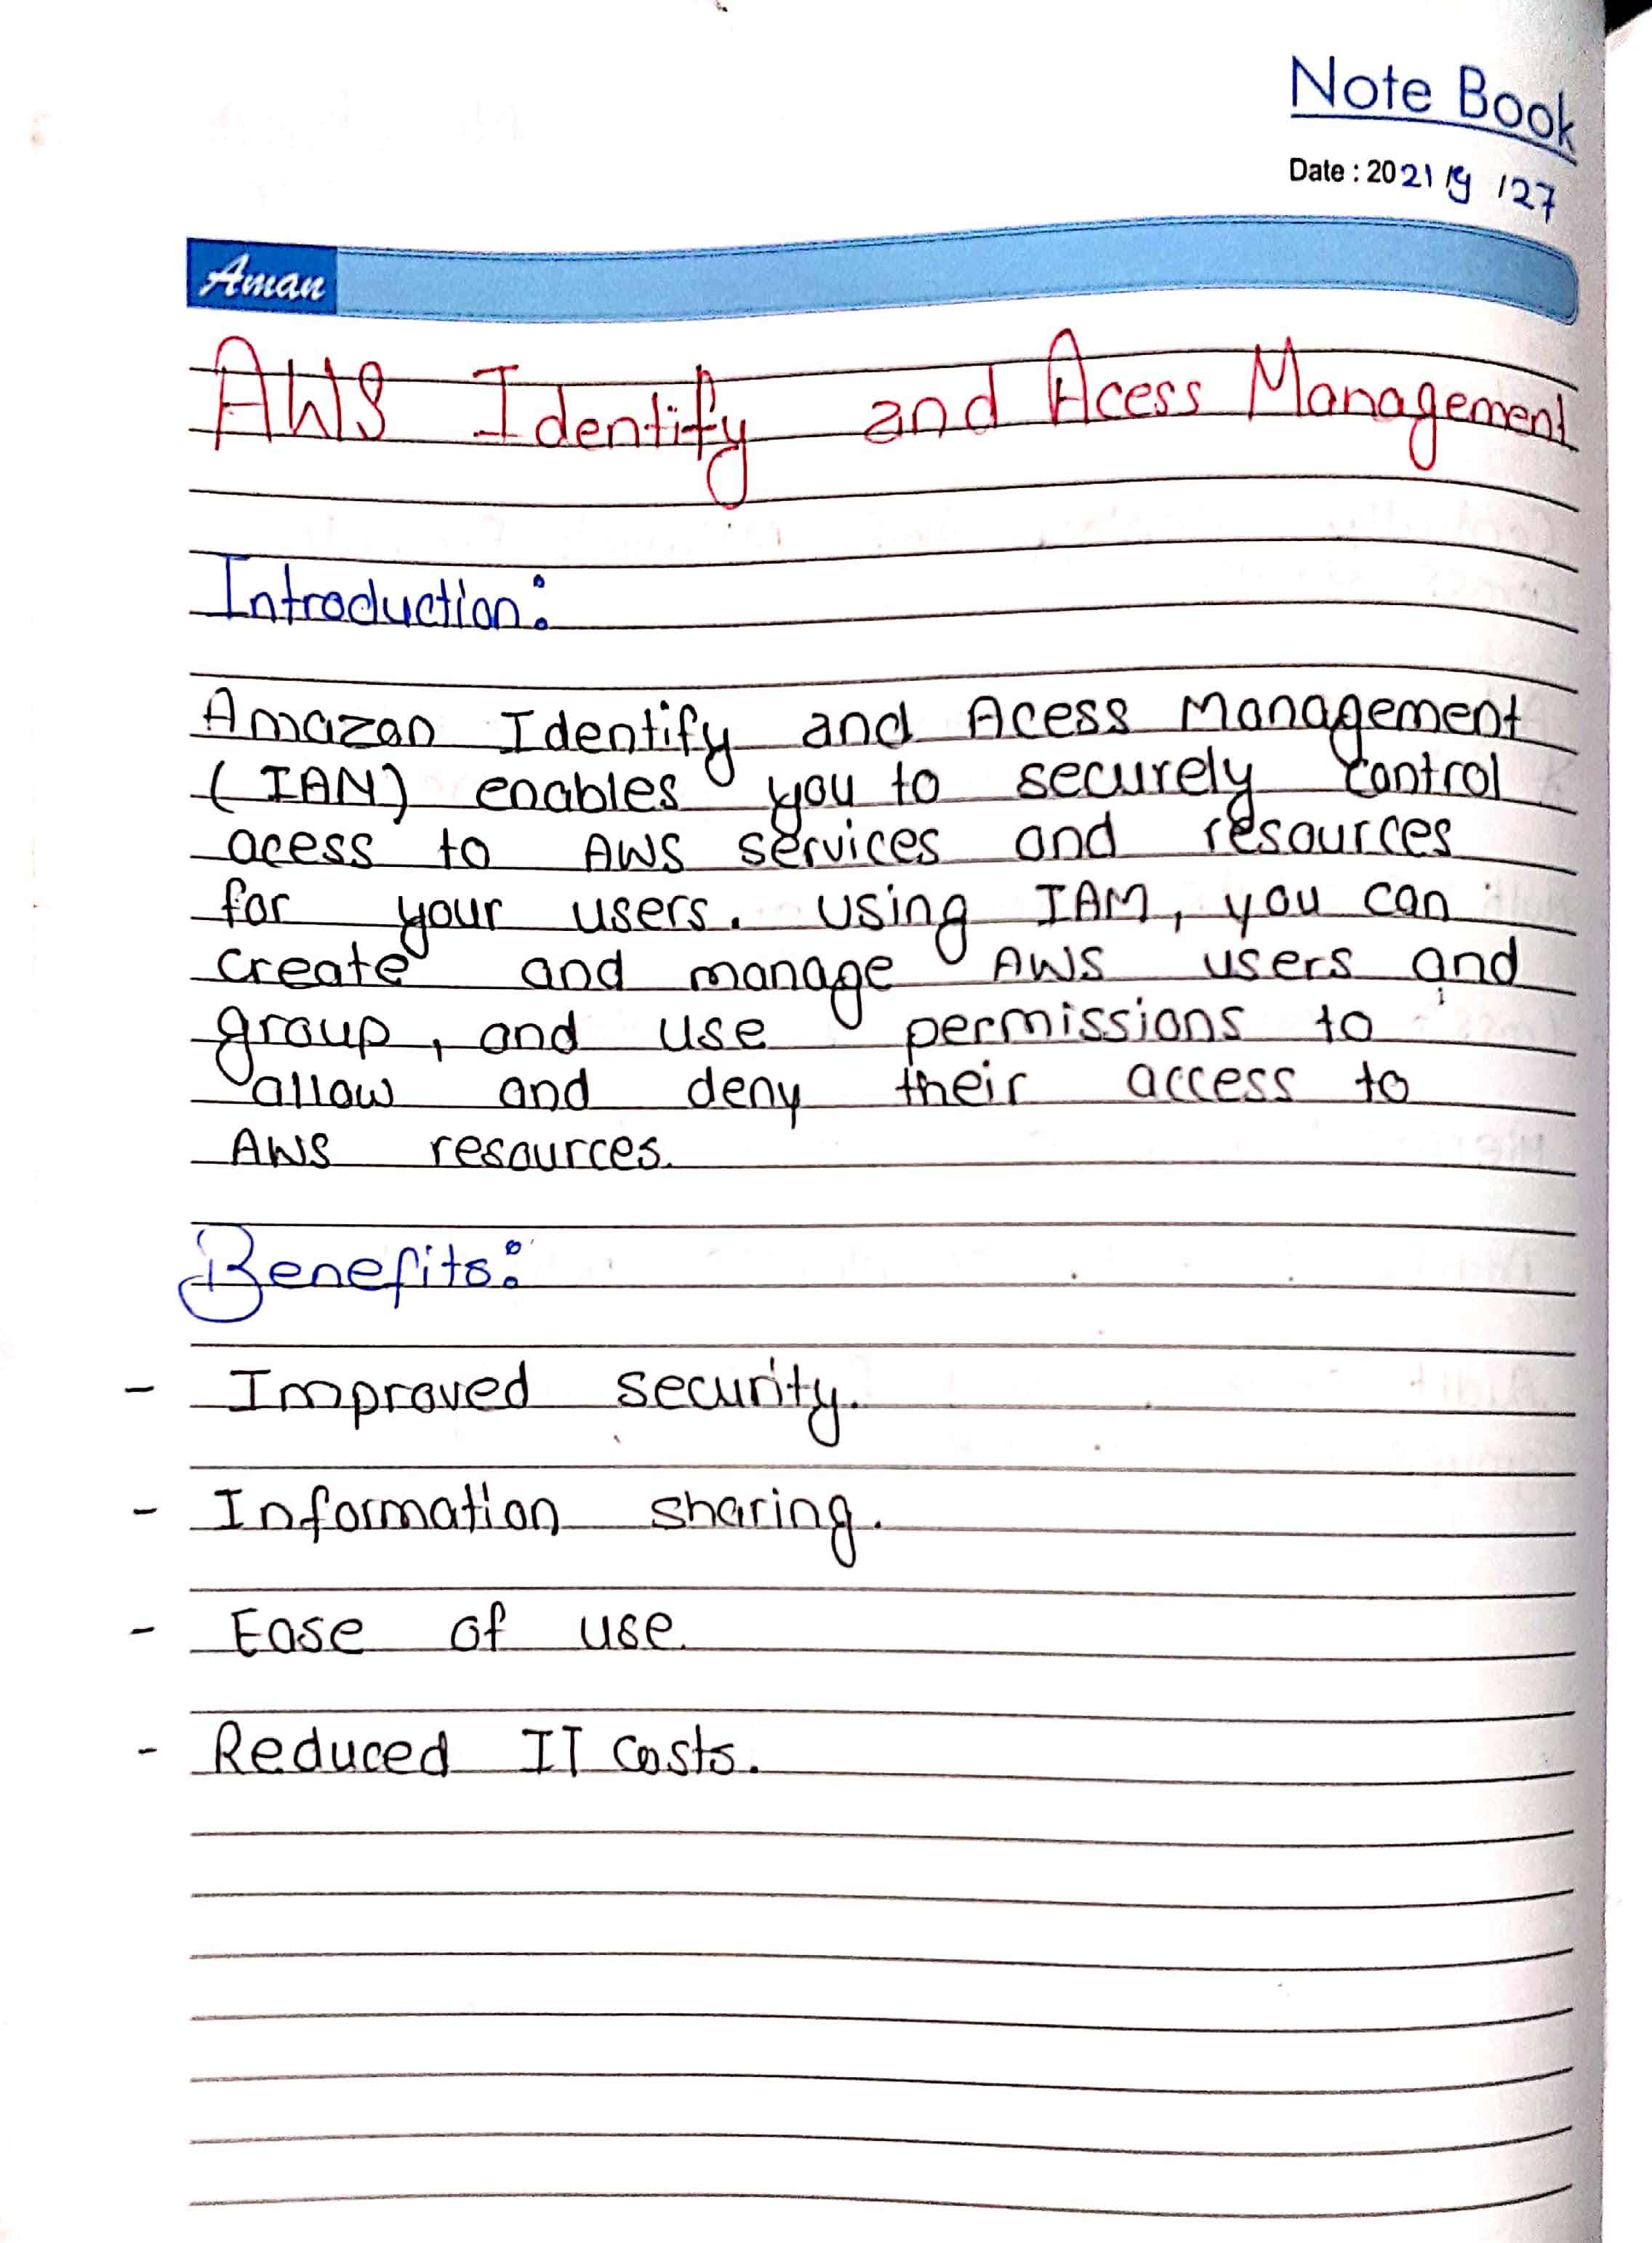 Note Book
Date : 2021/9/27
Aman
AWS Identify and Acess Management
Introduction:
Amazon Identify and Acess Management
(IAM) enables you to securely control
acess to AWS services and resources
for your users. Using IAM, you can
create and manage AWS users and
group, and use permissions to
allow and deny their access to
AWS resources.
Benefits:
- Improved security.
- Information sharing.
- Ease of use.
- Reduced IT costs.